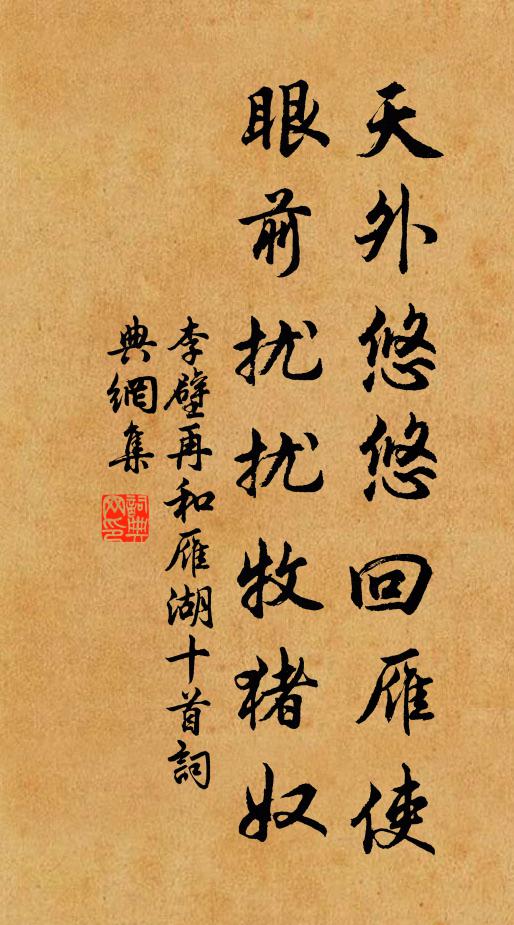 天外悠悠回雁使
眼前扰扰牧猪奴
李壁再和雁湖十首詞
典網集
詞典
网印